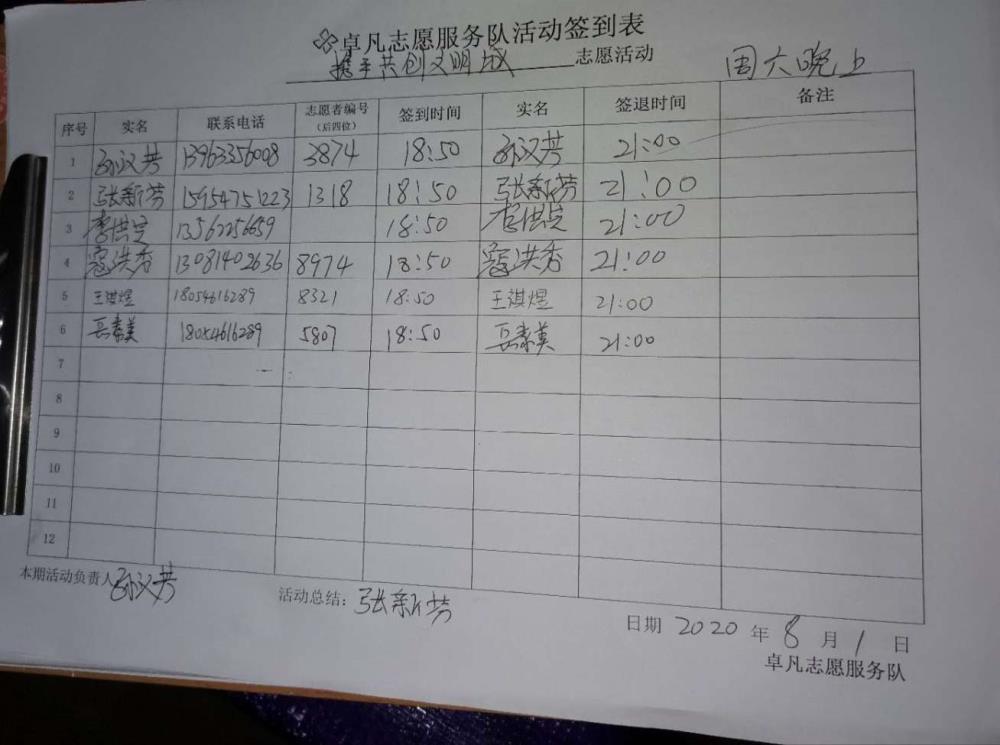 卓凡志愿服务队活动签到表
携手共创文明城 志愿活动 周六晚上
序号 实名 联系电话 志愿者编号（后四位） 签到时间 实名 签退时间 备注
1 孙汉芳 13963356008 3874 18:50 孙汉芳 21:00
2 张新芳 15954751223 1318 18:50 张新芳 21:00
3 李洪定 13562256659 18:50 李洪定 21:00
4 寇洪秀 13081402636 8974 18:50 寇洪秀 21:00
5 王淇煜 18054616289 8321 18:50 王淇煜 21:00
6 岳素美 18054616289 5807 18:50 岳素美 21:00
7
8
9
10
11
12
本期活动负责人 孙汉芳 活动总结：张新芳
日期 2020 年 8 月 1 日
卓凡志愿服务队